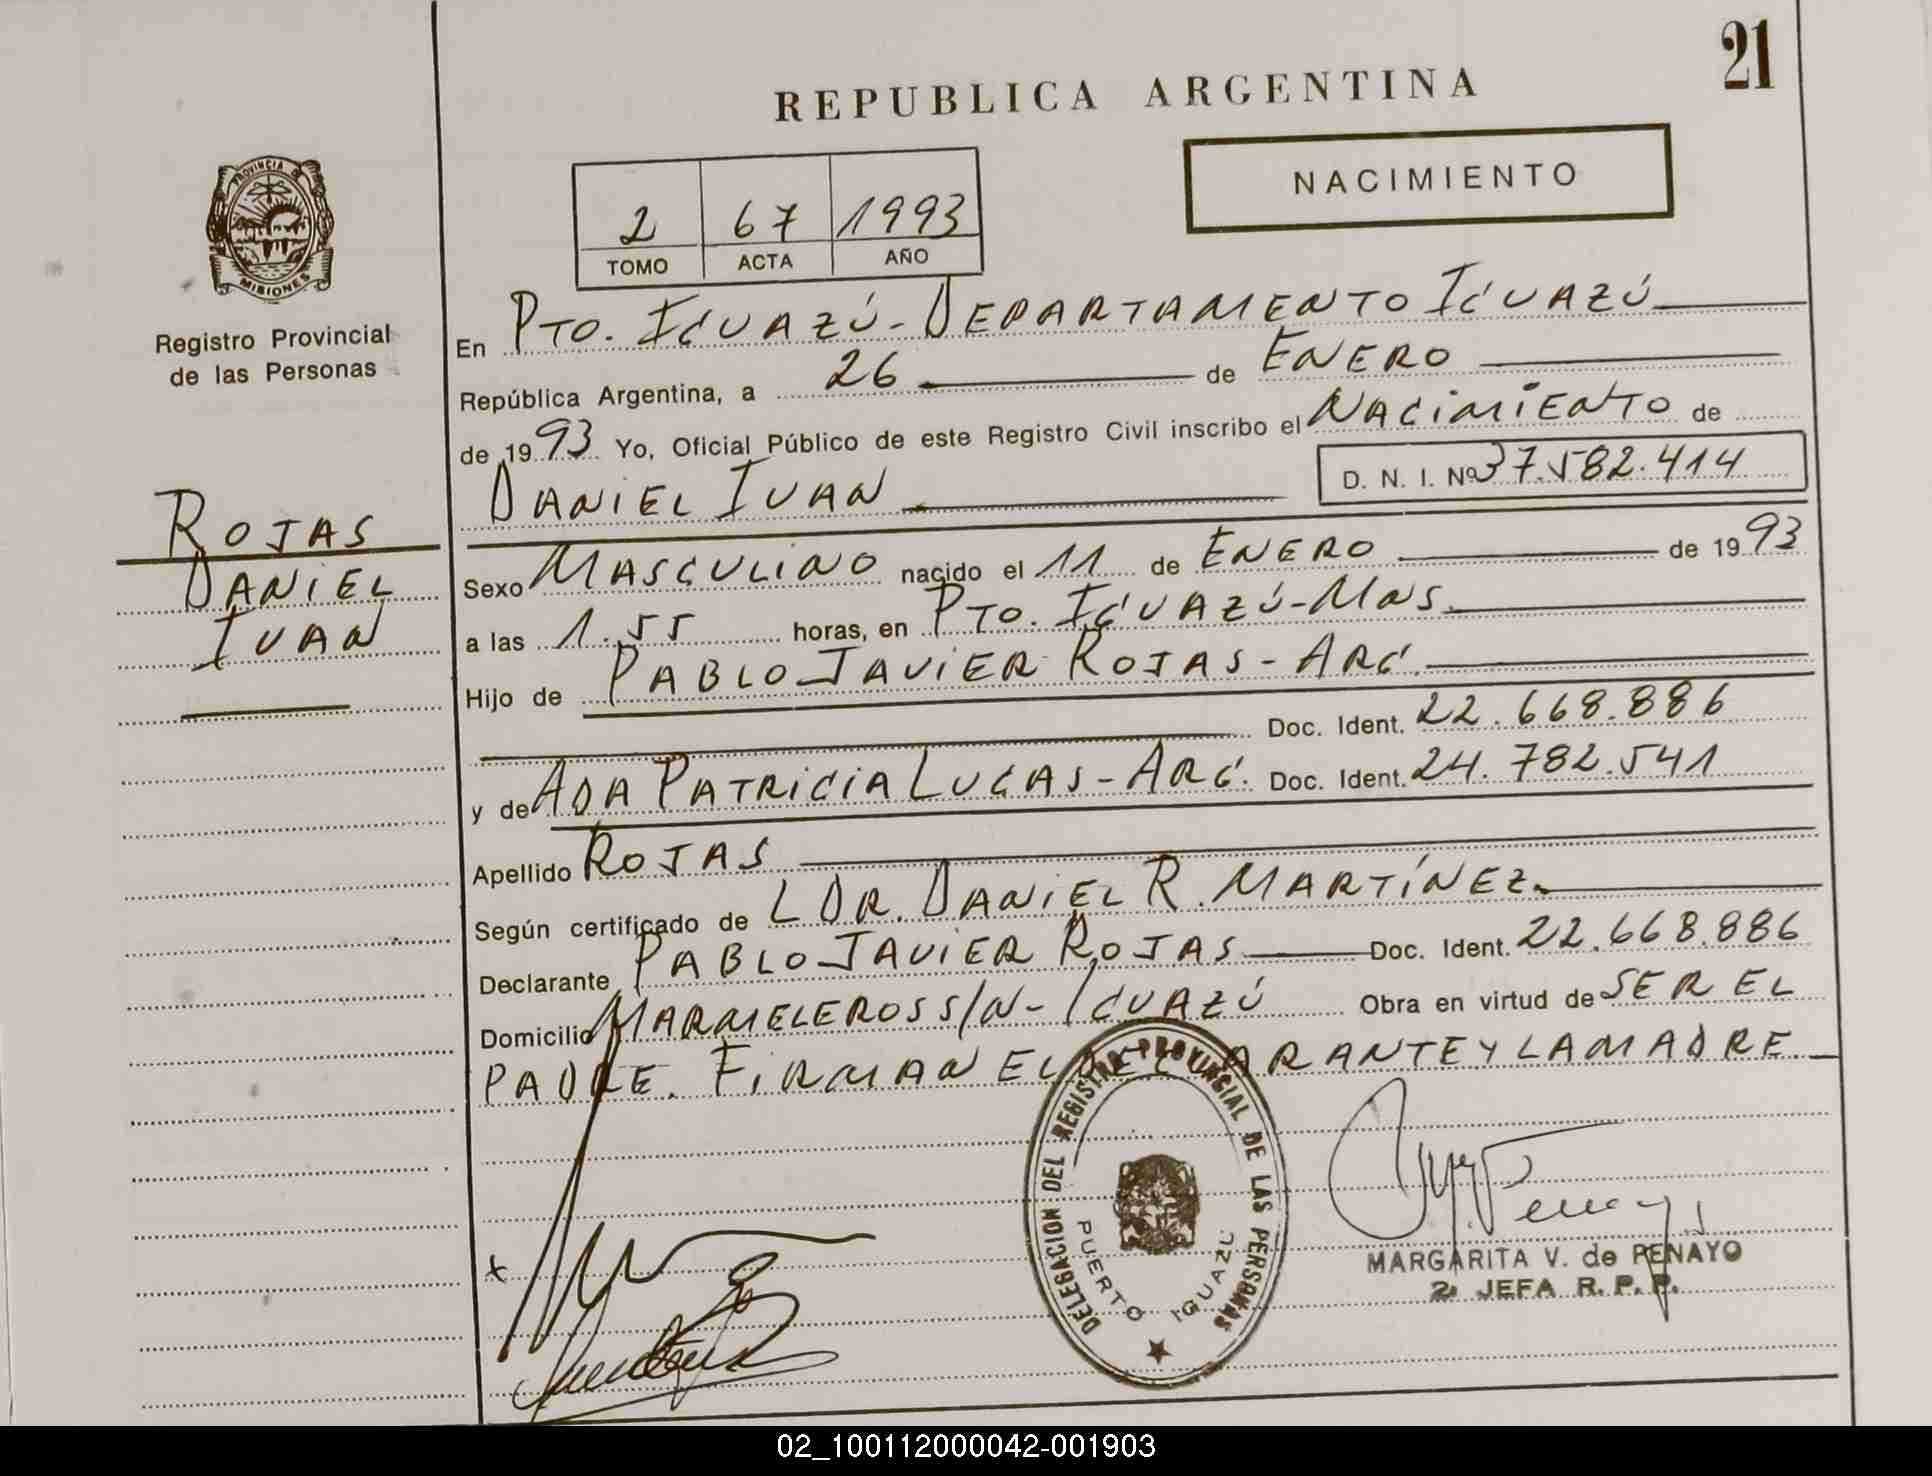 21
REPUBLICA ARGENTINA
NACIMIENTO
2 67 1993
TOMO ACTA AÑO
PROVINCIA DE
MISIONES
Registro Provincial
de las Personas
ROJAS
DANIEL
IVAN
En PTO. IGUAZÚ - DEPARTAMENTO IGUAZÚ
República Argentina, a 26 de ENERO
de 1993 Yo, Oficial Público de este Registro Civil inscribo el NACIMIENTO de
DANIEL IVAN D. N. I. Nº 37.582.414
Sexo MASCULINO nacido el 11 de ENERO de 1993
a las 1.55 horas, en PTO. IGUAZÚ-MNS.
Hijo de PABLO JAVIER ROJAS - ARG.
Doc. Ident. 22.668.886
y de ADA PATRICIA LUCAS - ARG. Doc. Ident. 24.782.541
Apellido ROJAS
Según certificado de L DR. DANIEL R. MARTÍNEZ.
Declarante PABLO JAVIER ROJAS Doc. Ident. 22.668.886
Domicilio MARMELEROS S/N - IGUAZÚ Obra en virtud de SER EL
PADRE. FIRMAN EL DECLARANTE Y LA MADRE.
DELEGACION DEL REGISTRO PROVINCIAL DE LAS PERSONAS
PUERTO IGUAZU
x
MARGARITA V. de PENAYO
2ª JEFA R. P. P.
02_100112000042-001903